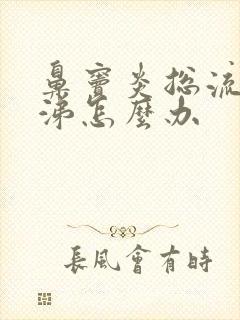 鼻窦炎总流
涕怎麼办
長風會有時